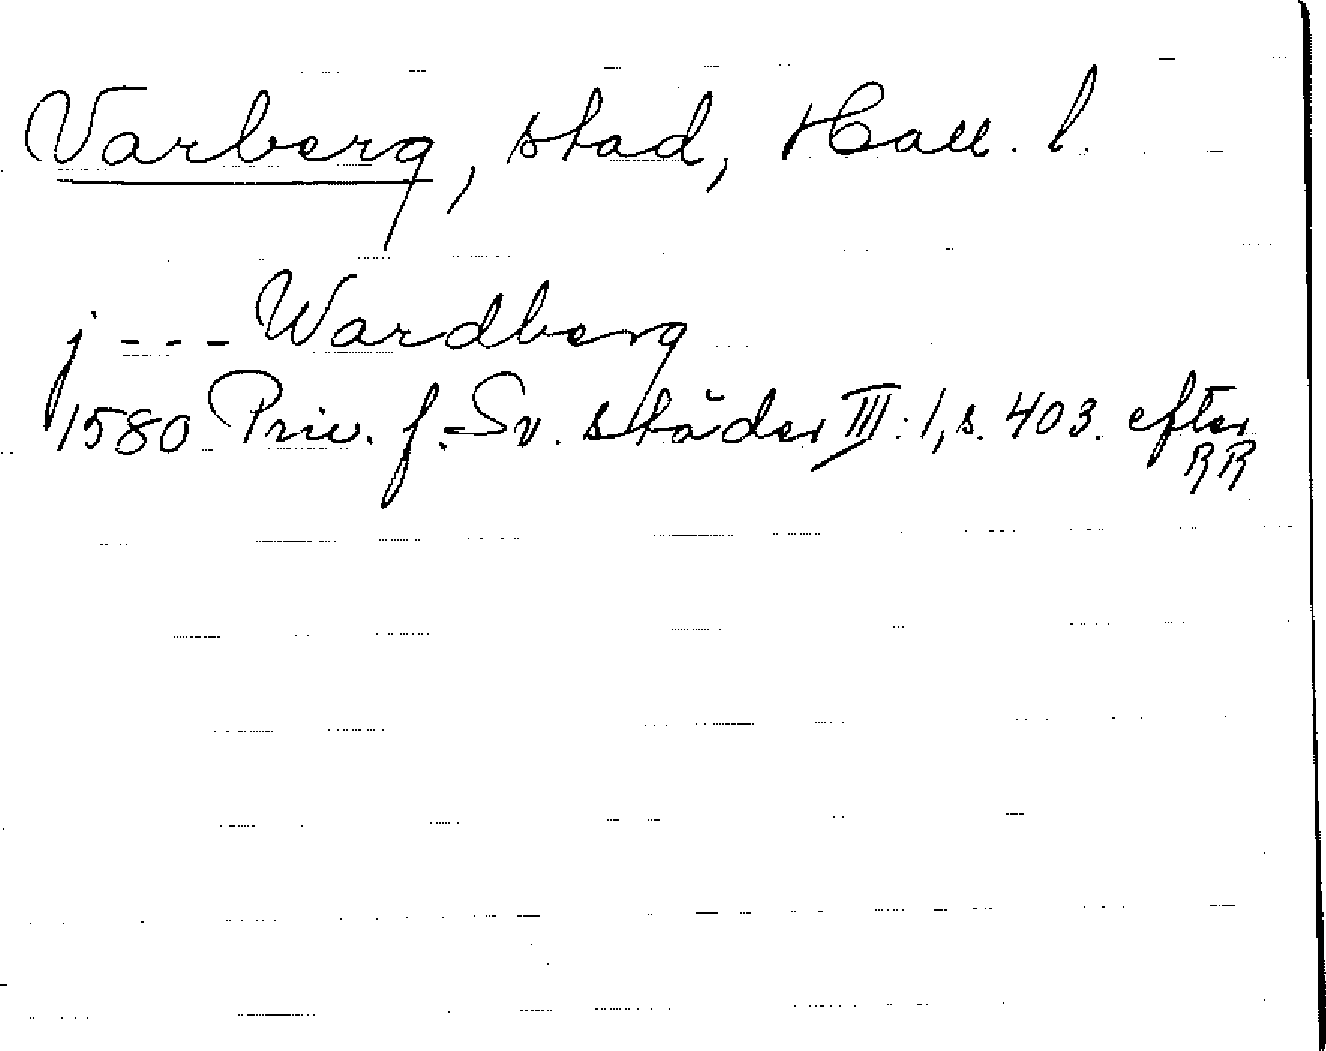 Varberg, stad, Hall. l.
j --- Wardberg
1580 Priv. f. Sv. städer III:1, s. 403. efter
RR